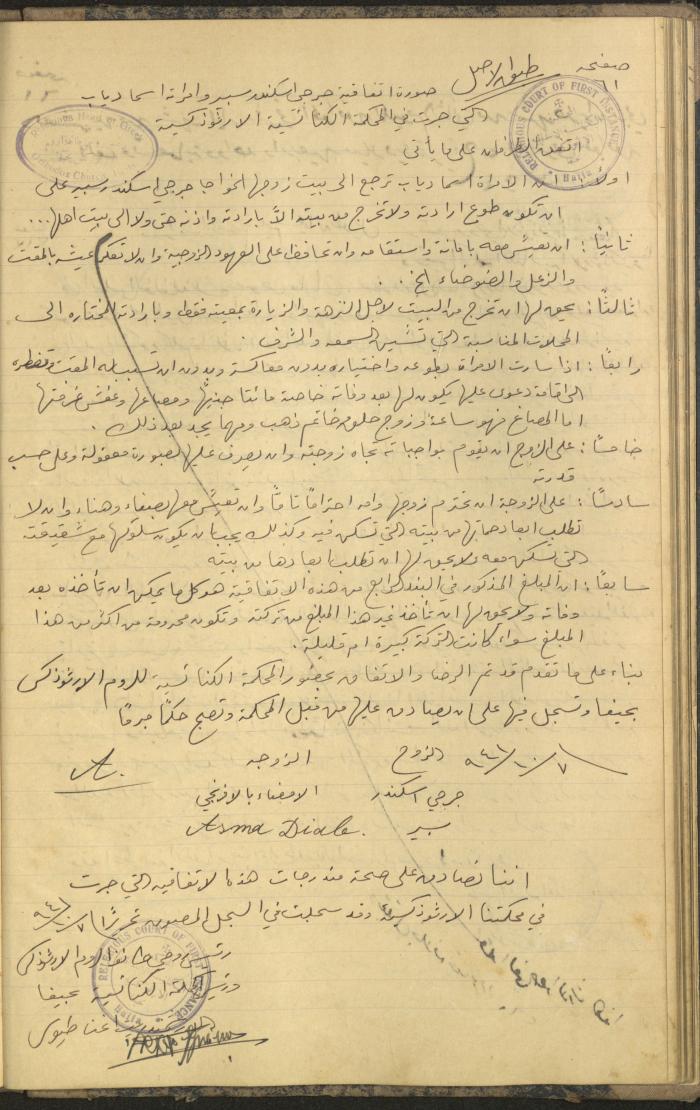 صفحة ٦١
طبق الاصل
صورة اتفاقية جرجي اسكندر سبير وامرأته اسما دياب
التي جرت في المحكمة الكنائسية الارثوذكسية
RELIGIOUS COURT OF FIRST INSTANCE
Haifa
اتفق الطرفان على ما يأتي
اولاً: ان الامرأة اسما دياب ترجع الى بيت زوجها الخواجا جرجي اسكندر سبير على
ان تكون طوع ارادته ولا تخرج من بيته الا بارادته واذنه حتى ولا الى بيت اهلها...
ثانياً: ان تعيش معه بامانة واستقامه وان تحافظ على العهود الزوجية وان لا تعكر عيشه بالمقت
والزعل والضوضاء الخ..
ثالثاً: يحق لها ان تخرج من البيت لاجل النزهة والزيارة بمعيته فقط وبارادته المختاره الى
المحلات المناسبة التي السمعه والشرف.
رابعاً: اذا سارت الامرأة بطوعه واختياره بدون معاكسة وبدون ان تسبب له المقت وتضطره
الى اقامة دعوى عليها يكون لها بعد وفاته خاصة مائتا جنيهاً ومصاغها وعفش غرفتها
اما المصاغ فهو ساعة وزوج حلق وخاتم ذهب ومهما يجد بعد ذلك.
خامساً: على الزوج ان يقوم بواجباته تجاه زوجته وان يصرف عليها بصورة معقولة وعلى حسب
قدرته
سادساً: على الزوجة ان تحترم زوجها وامه احتراماً تاماً وان تعيش معها بصفاء وهناء وان لا
تطلب ابعاد حماتها من بيته التي تسكن فيه وكذلك يجب ان يكون سلوكها مع شقيقته
التي تسكن معه ولا يحق لها ان تطلب ابعادها من بيته
سابعاً: ان المبلغ المذكور في البند الرابع من هذه الاتفاقية هو كل ما يمكن ان تأخذه بعد
وفاته ولا يحق لها ان تأخذ غير هذا المبلغ من تركته وتكون محرومة من اكثر من هذا
المبلغ سواء كانت التركة كبيرة ام قليلة.
بناء على ما تقدم قد تم الرضا والاتفاق بحضور المحكمة الكنائسية للروم الارثوذكس
بحيفا وتسجل فيها على ان يصادق عليها من قبل المحكمة وتصبح حكماً مبرماً
٧/١٠/٩٤٦
الزوج
الزوجه
جرجي اسكندر
الامضاء بالافرنجي
سبير
Asma Diab.
اننا نصادق على صحة مندرجات هذه الاتفاقيه التي جرت
في محكمتنا الارثوذكسية وقد سجلت في السجل المصون تحريراً ٧/١٠/٩٤٦
رئيس روحي طائفة الروم الارثوذكس
ورئيس المحكمة الكنائسية بحيفا
اغناطيوس
RELIGIOUS COURT OF FIRST INSTANCE
Haifa